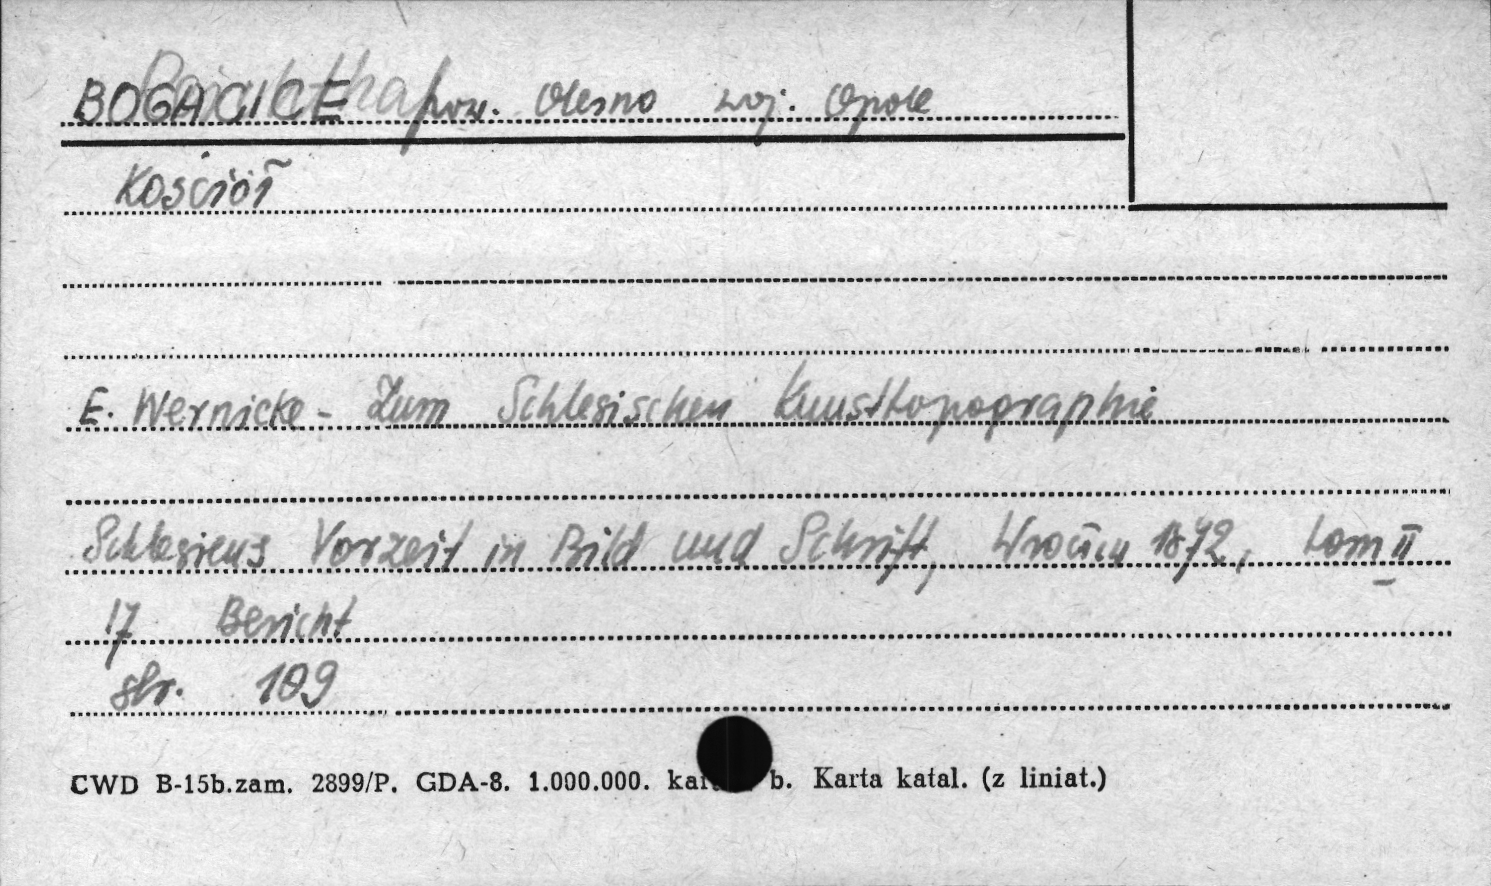 BOGACICE pow. Olesno woj. Opole
Kościół
E. Wernicke - Zum Schlesischen Kunsttopographie
Schlesiens Vorzeit in Bild und Schrift, Wrocław 1872, tom II
17 Bericht
str. 109
CWD B-15b.zam. 2899/P. GDA-8. 1.000.000. b. Karta katal. (z liniat.)